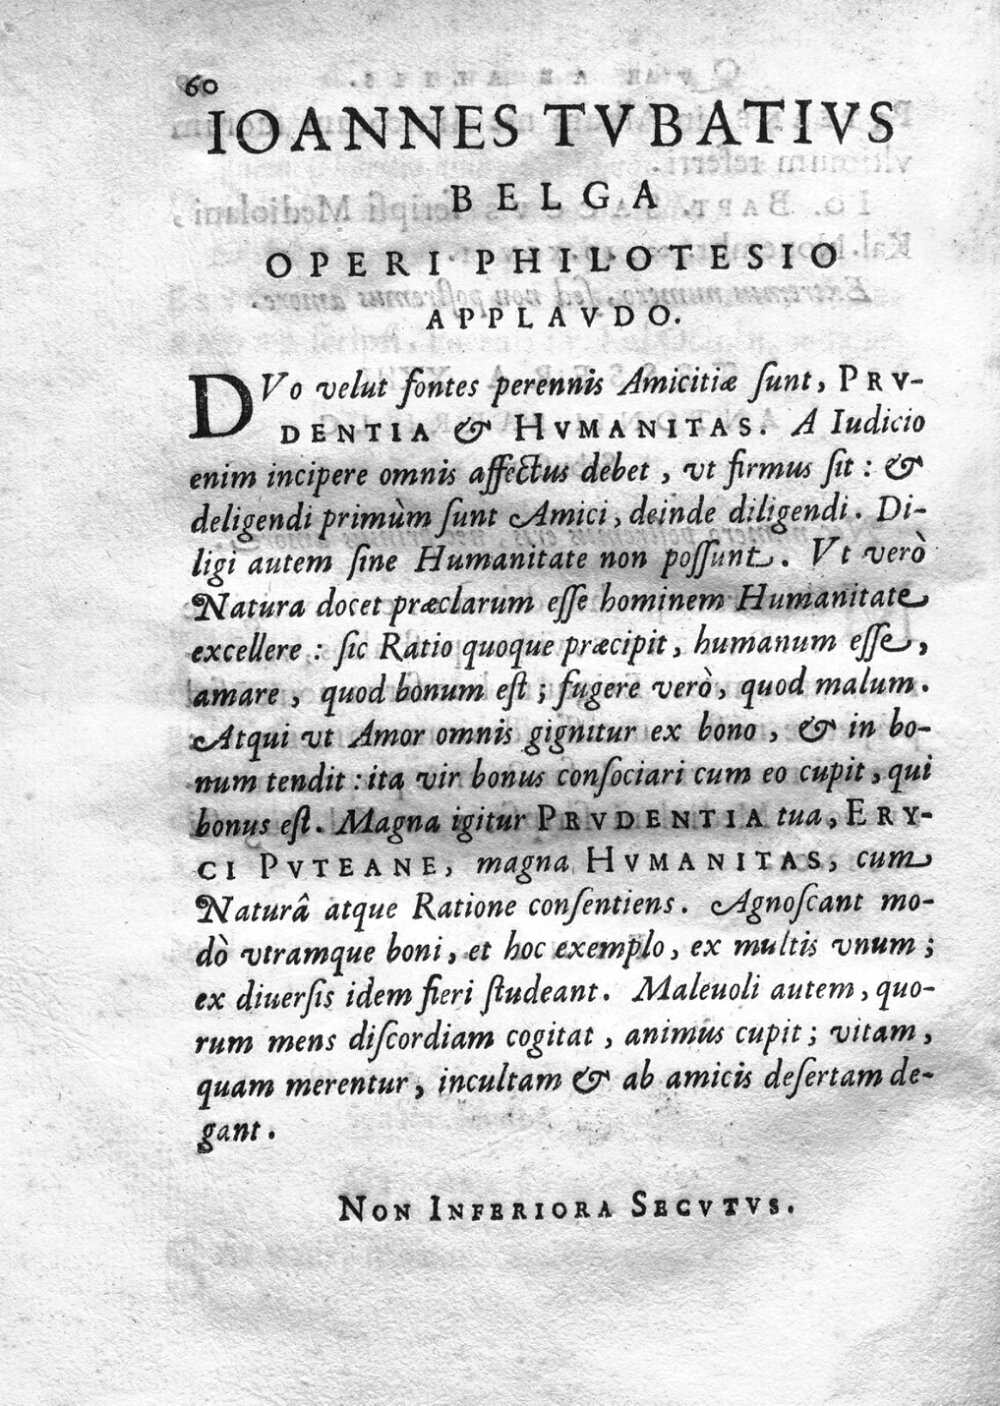 60
IOANNES TVBATIVS
BELGA
OPERI PHILOTESIO
APPLAVDO.
DVo velut fontes perennis Amicitiæ ſunt, PRV-
DENTIA & HVMANITAS. A Iudicio
enim incipere omnis affectus debet, vt firmus ſit: &
deligendi primùm ſunt Amici, deinde diligendi. Di-
ligi autem ſine Humanitate non poſſunt. Vt verò
Natura docet præclarum eſſe hominem Humanitate
excellere: ſic Ratio quoque præcipit, humanum eſſe,
amare, quod bonum eſt; fugere verò, quod malum.
Atqui vt Amor omnis gignitur ex bono, & in bo-
num tendit: ita vir bonus conſociari cum eo cupit, qui
bonus eſt. Magna igitur PRVDENTIA tua, ERY-
CI PVTEANE, magna HVMANITAS, cum
Naturâ atque Ratione conſentiens. Agnoſcant mo-
dò vtramque boni, et hoc exemplo, ex multis vnum;
ex diuerſis idem fieri ſtudeant. Maleuoli autem, quo-
rum mens diſcordiam cogitat, animus cupit; vitam,
quam merentur, incultam & ab amicis deſertam de-
gant.
NON INFERIORA SECVTVS.